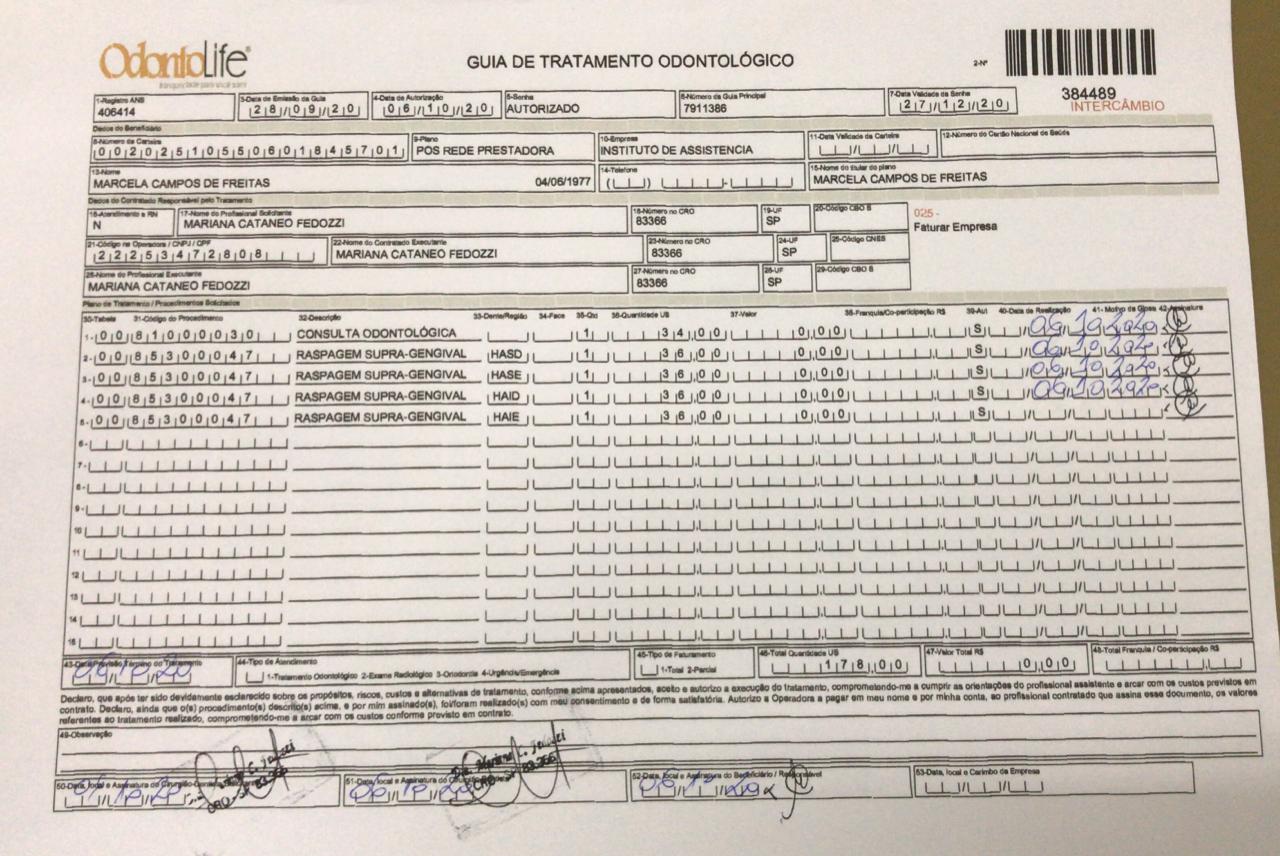 OdontoLife®
tranquilidade para você sorrir
GUIA DE TRATAMENTO ODONTOLÓGICO
2-Nº
384489
INTERCÂMBIO
1-Registro ANS 3-Data de Emissão da Guia 4-Data de Autorização 5-Senha 6-Número da Guia Principal 7-Data Validade da Senha
406414 28/09/20 06/10/20 AUTORIZADO 7911386 27/12/20
Dados do Beneficiário
8-Número da Carteira 9-Plano 10-Empresa 11-Data Validade da Carteira 12-Número do Cartão Nacional de Saúde
00202510550601845701 POS REDE PRESTADORA INSTITUTO DE ASSISTENCIA
13-Nome 14-Telefone 15-Nome do titular do plano
MARCELA CAMPOS DE FREITAS 04/06/1977 MARCELA CAMPOS DE FREITAS
Dados do Contratado Responsável pelo Tratamento
16-Atendimento a RN 17-Nome do Profissional Solicitante 18-Número no CRO 19-UF 20-Código CBO S
N MARIANA CATANEO FEDOZZI 83366 SP
025 -
Faturar Empresa
21-Código na Operadora / CNPJ / CPF 22-Nome do Contratado Executante 23-Número no CRO 24-UF 25-Código CNES
22253472808 MARIANA CATANEO FEDOZZI 83366 SP
26-Nome do Profissional Executante 27-Número no CRO 28-UF 29-Código CBO S
MARIANA CATANEO FEDOZZI 83366 SP
Plano de Tratamento / Procedimentos Solicitados
30-Tabela 31-Código do Procedimento 32-Descrição 33-Dente/Região 34-Face 35-Qtd 36-Quantidade US 37-Valor 38-Franquia/Co-participação R$ 39-Aut 40-Data de Realização 41-Motivo da Glosa 42-Assinatura
1- 00 81000030 CONSULTA ODONTOLÓGICA 1 34,00 0,00 S 06.10.2020
2- 00 85300047 RASPAGEM SUPRA-GENGIVAL HASD 1 36,00 0,00 S 06.10.2020
3- 00 85300047 RASPAGEM SUPRA-GENGIVAL HASE 1 36,00 0,00 S 06.10.2020
4- 00 85300047 RASPAGEM SUPRA-GENGIVAL HAID 1 36,00 0,00 S 06.10.2020
5- 00 85300047 RASPAGEM SUPRA-GENGIVAL HAIE 1 36,00 0,00 S
6-
7-
8-
9-
10
11
12
13
14
15
43-Data Previsão Término do Tratamento 44-Tipo de Atendimento 45-Tipo de Faturamento 46-Total Quantidade US 47-Valor Total R$ 48-Total Franquia / Co-participação R$
06.10.20 1-Tratamento Odontológico 2-Exame Radiológico 3-Ortodontia 4-Urgência/Emergência 1-Total 2-Parcial 178,00 0,00
Declaro, que após ter sido devidamente esclarecido sobre os propósitos, riscos, custos e alternativas de tratamento, conforme acima apresentados, aceito e autorizo a execução do tratamento, comprometendo-me a cumprir as orientações do profissional assistente e arcar com os custos previstos em
contrato. Declaro, ainda que o(s) procedimento(s) descrito(s) acima, e por mim assinado(s), foi/foram realizado(s) com meu consentimento e de forma satisfatória. Autorizo a Operadora a pagar em meu nome e por minha conta, ao profissional contratado que assina esse documento, os valores
referentes ao tratamento realizado, comprometendo-me a arcar com os custos conforme previsto em contrato.
49-Observação
Dra. Mariana C. Fedozzi
CRO-SP 83.366
50-Data, local e Assinatura do Cirurgião-Dentista 51-Data, local e Assinatura do 52-Data, local e Assinatura do Beneficiário / Responsável 53-Data, local e Carimbo da Empresa
06.10.20 06.10.20